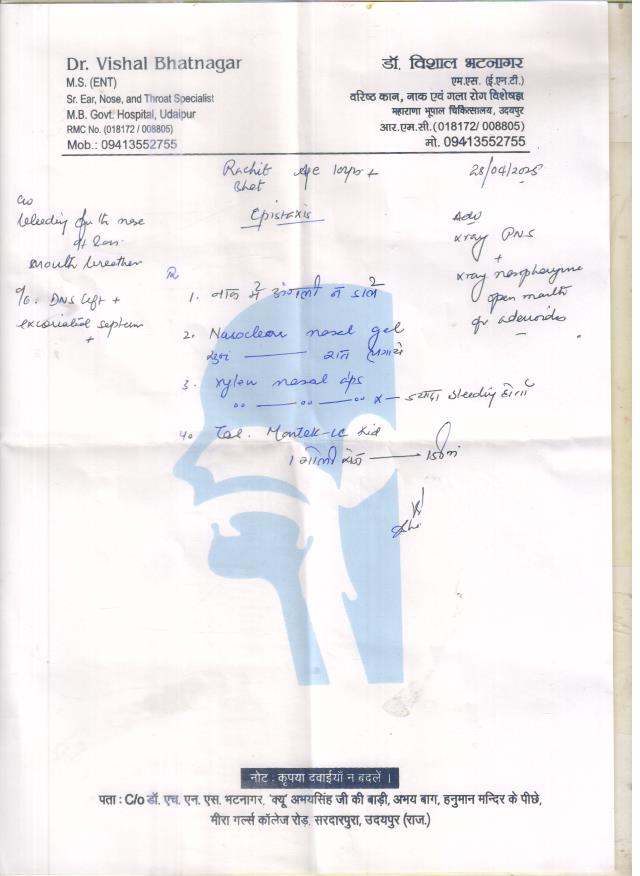 Dr. Vishal Bhatnagar
M.S. (ENT)
Sr. Ear, Nose, and Throat Specialist
M.B. Govt. Hospital, Udaipur
RMC No. (018172 / 008805)
Mob.: 09413552755
डॉ. विशाल भटनागर
एम.एस. (ई.एन.टी.)
वरिष्ठ कान, नाक एवं गला रोग विशेषज्ञ
महाराणा भूपाल चिकित्सालय, उदयपुर
आर.एम.सी.(018172/ 008805)
मो. 09413552755
Rachit Age 10yr
28/04/2025
c/o
bleeding from the nose
mouth breather
O/E. DNS left +
excoriated septum
+
Epistaxis
Adv
xray PNS
+
xray nasopharynx
open mouth
for adenoids
Rx
1. नाक में उंगली न डालें
2. Nasoclear nasal gel
सुबह रात लगाये
3. xylew nasal dps
" — " — " x — ज्यादा bleeding होतो
4. Tab. Montek-LC Kid
1 गोली रोज — 15 दिन
नोट : कृपया दवाईयाँ न बदलें ।
पता : C/o डॉ. एच. एन. एस. भटनागर, 'क्यू' अभयसिंह जी की बाड़ी, अभय बाग, हनुमान मन्दिर के पीछे,
मीरा गर्ल्स कॉलेज रोड़, सरदारपुरा, उदयपुर (राज.)